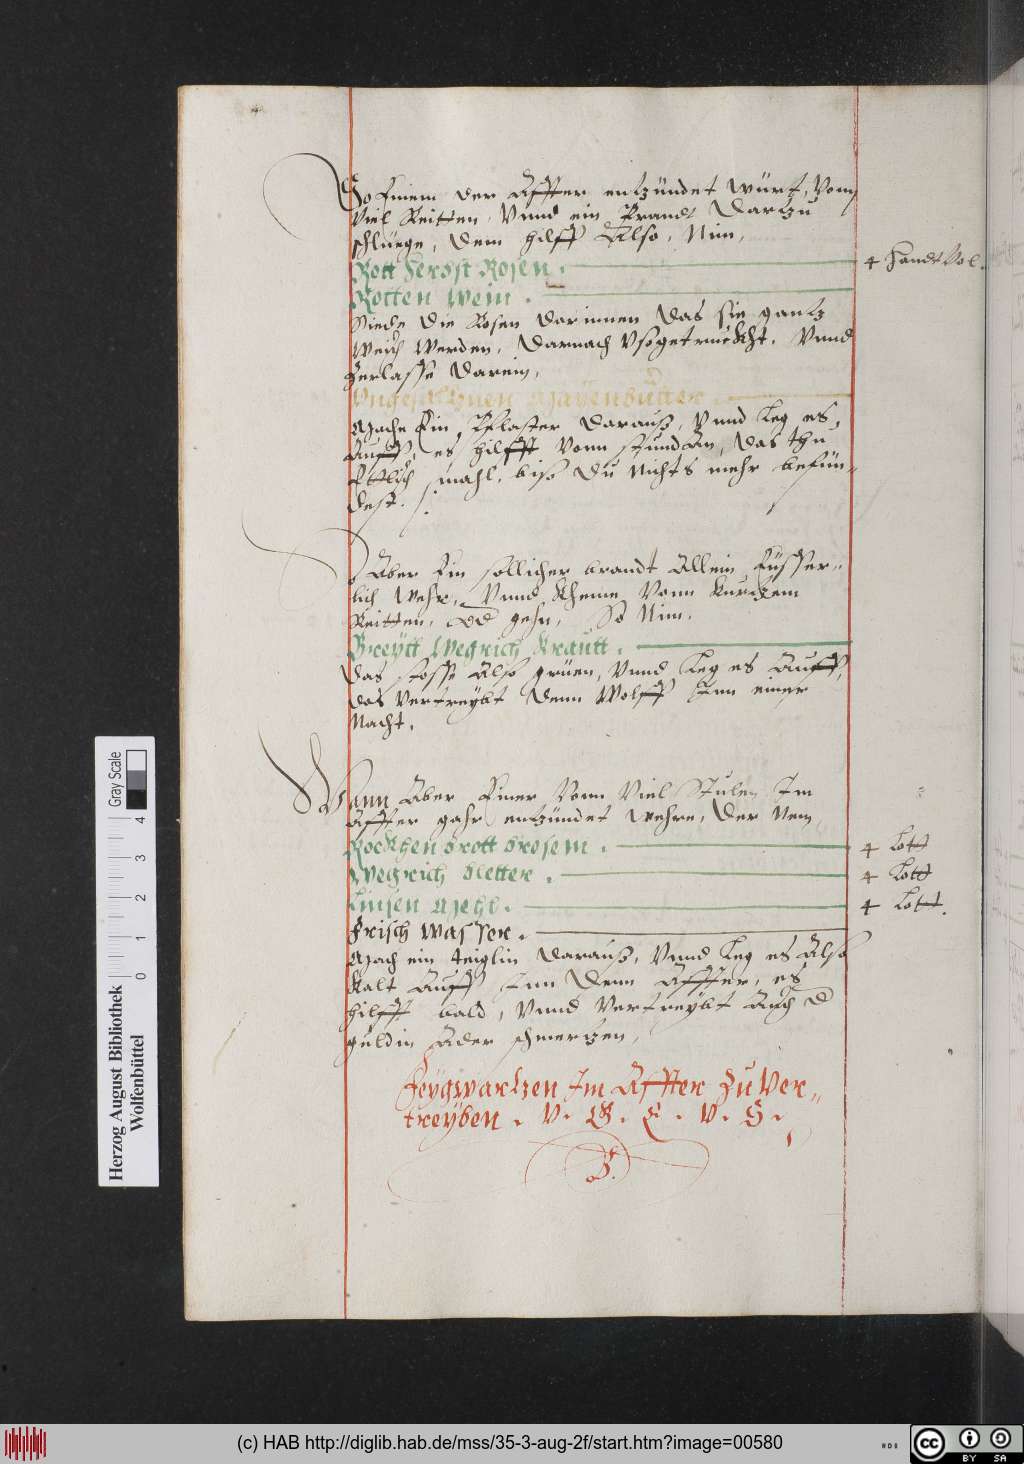 So Einem der Affter entzündet würt, Vonn
Viel Reitten, Vnnd ein Brandt Dartzu
schlüege, dem hilff Also, Nim,
Rott Herbst Rosen. 4 Handt Vol.
Rotten Wein.
Siede die Rosen darinnen das sie gantz
Weich Werden, darnach Vßgetruckht, Vnnd
Zerlasse darein,
Vngesaltznen Mayenbutter.
Mache Ein Pflaster darauß, Vnnd Leg es
Auff, es hilfft Vonn stundan, das thu
Ettlich mahl, biß du Nichts mehr befün-
dest.
Aber Ein sollicher brandt Allein Eüsser-
lich Wehr, Vnnd Kheme Vonn Kurtzem
Reitten, Od gehn, So Nim,
Breytt Wegrich Krautt.
Das stosse Also grüen, Vnnd Leg es Auff,
das Vertreybt denn Wolff Inn einer
Nacht.
Wann Aber Einer Vonn Viel Stulen Im
Affter gahr entzündet Wehre, der Nem
Rockhen brott brosem. 4 Lott
Wegrich bletter. 4 Lott
Linsen Mehl. 4 Lott.
Frisch Wasser.
Mach ein teiglin darauß, Vnnd Leg es Also
Kalt Auff Inn denn Affter, es
hilfft bald, Vnnd Vertreybt Auch d
guldin Ader schmertzen,
Feygwartzen Im Affter Zu Ver-
treyben. V. G. E. V. S.
B.
Gray Scale
0 1 2 3 4
Herzog August Bibliothek
Wolfenbüttel
(c) HAB http://diglib.hab.de/mss/35-3-aug-2f/start.htm?image=00580
cc BY SA